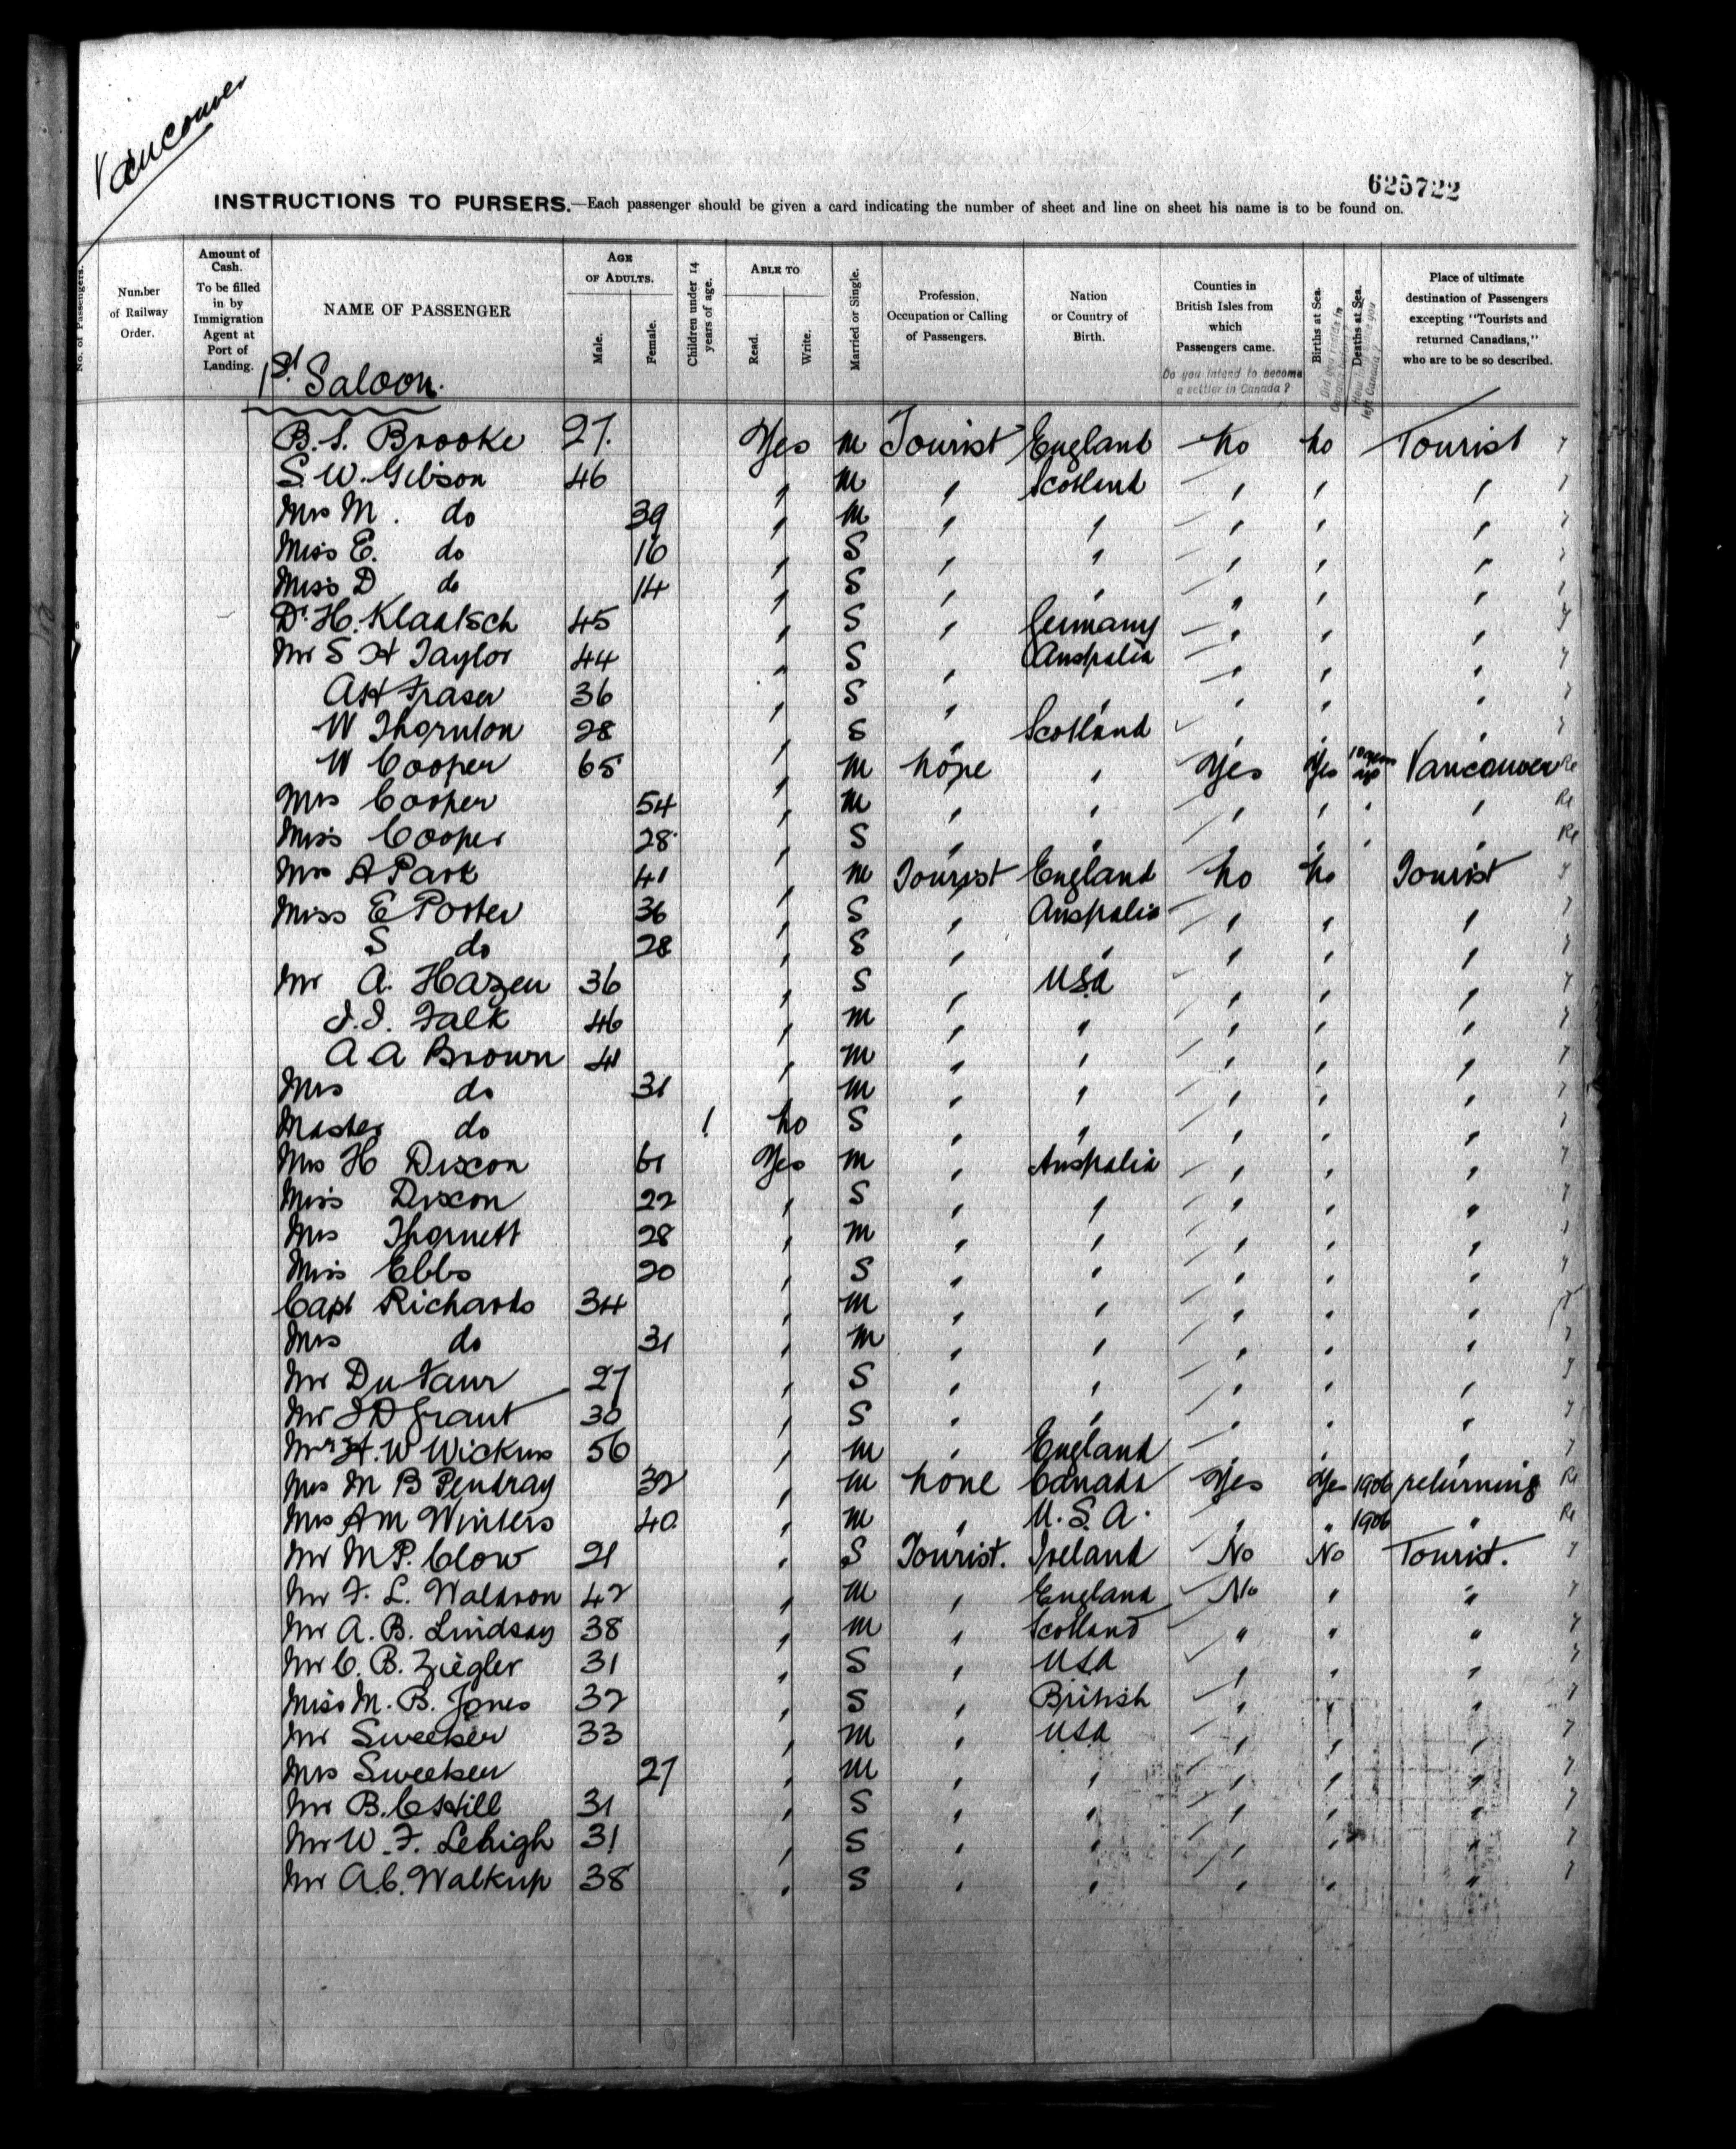 Vancouver
625722
INSTRUCTIONS TO PURSERS.—Each passenger should be given a card indicating the number of sheet and line on sheet his name is to be found on.
No. of Passengers.
Number of Railway Order.
Amount of Cash. To be filled in by Immigration Agent at Port of Landing.
NAME OF PASSENGER
AGE OF ADULTS.
Male.
Female.
Children under 14 years of age.
ABLE TO
Read.
Write.
Married or Single.
Profession, Occupation or Calling of Passengers.
Nation or Country of Birth.
Counties in British Isles from which Passengers came.
Do you intend to become a settler in Canada?
Births at Sea.
Deaths at Sea.
Place of ultimate destination of Passengers excepting "Tourists and returned Canadians," who are to be so described.
1st Saloon.
B. S. Brooke 27. Yes M Tourist England No No Tourist
S. W. Gibson 46 " M " Scotland " " "
Mrs M. do 39 " M " " " " "
Miss E. do 16 " S " " " " "
Miss D do 14 " S " " " " "
Dr H. Klaatsch 45 " S " Germany " " "
Mr S H Taylor 44 " S " Australia " " "
A H Fraser 36 " S " " " " "
W Thornton 28 " S " Scotland " " "
W Cooper 65 " M None " Yes Yes Vancouver Re
Mrs Cooper 54 " M " " " " " " Re
Miss Cooper 28 " S " " " " " " Re
Mrs A Park 41 " M Tourist England No No Tourist
Miss E Porter 36 " S " Australia " " "
S do 28 " S " " " " "
Mr A. Hazen 36 " S " USA " " "
J. J. Falk 46 " M " " " " "
A A Brown 41 " M " " " " "
Mrs do 31 " M " " " " "
Master do 1 No S " " " " "
Mrs H Dixon 61 Yes M " Australia " " "
Miss Dixon 22 " S " " " " "
Mrs Thornett 28 " M " " " " "
Miss Ebbs 20 " S " " " " "
Capt Richards 34 " M " " " " "
Mrs do 31 " M " " " " "
Mr Du Faur 27 " S " " " " "
Mr J D Grant 30 " S " " " " "
Mr H. W Wickens 56 " M " England " " "
Mrs M B Pendray 32 " M None Canada Yes Yes 1906 returning Re
Mrs A M Winters 40 " M " U.S.A. " " 1906 " Re
Mr M P. Clow 21 " S Tourist. Ireland No No Tourist.
Mr F. L. Waldron 42 " M " England No " "
Mr A. B. Lindsay 38 " M " Scotland " " "
Mr C. B. Ziegler 31 " S " USA " " "
Miss M. B. Jones 32 " S " British " " "
Mr Sweeker 33 " M " USA " " "
Mrs Sweeker 27 " M " " " " "
Mr B. C Hill 31 " S " " " " "
Mr W. F. Lehigh 31 " S " " " " "
Mr A. C. Walkup 38 " S " " " " "